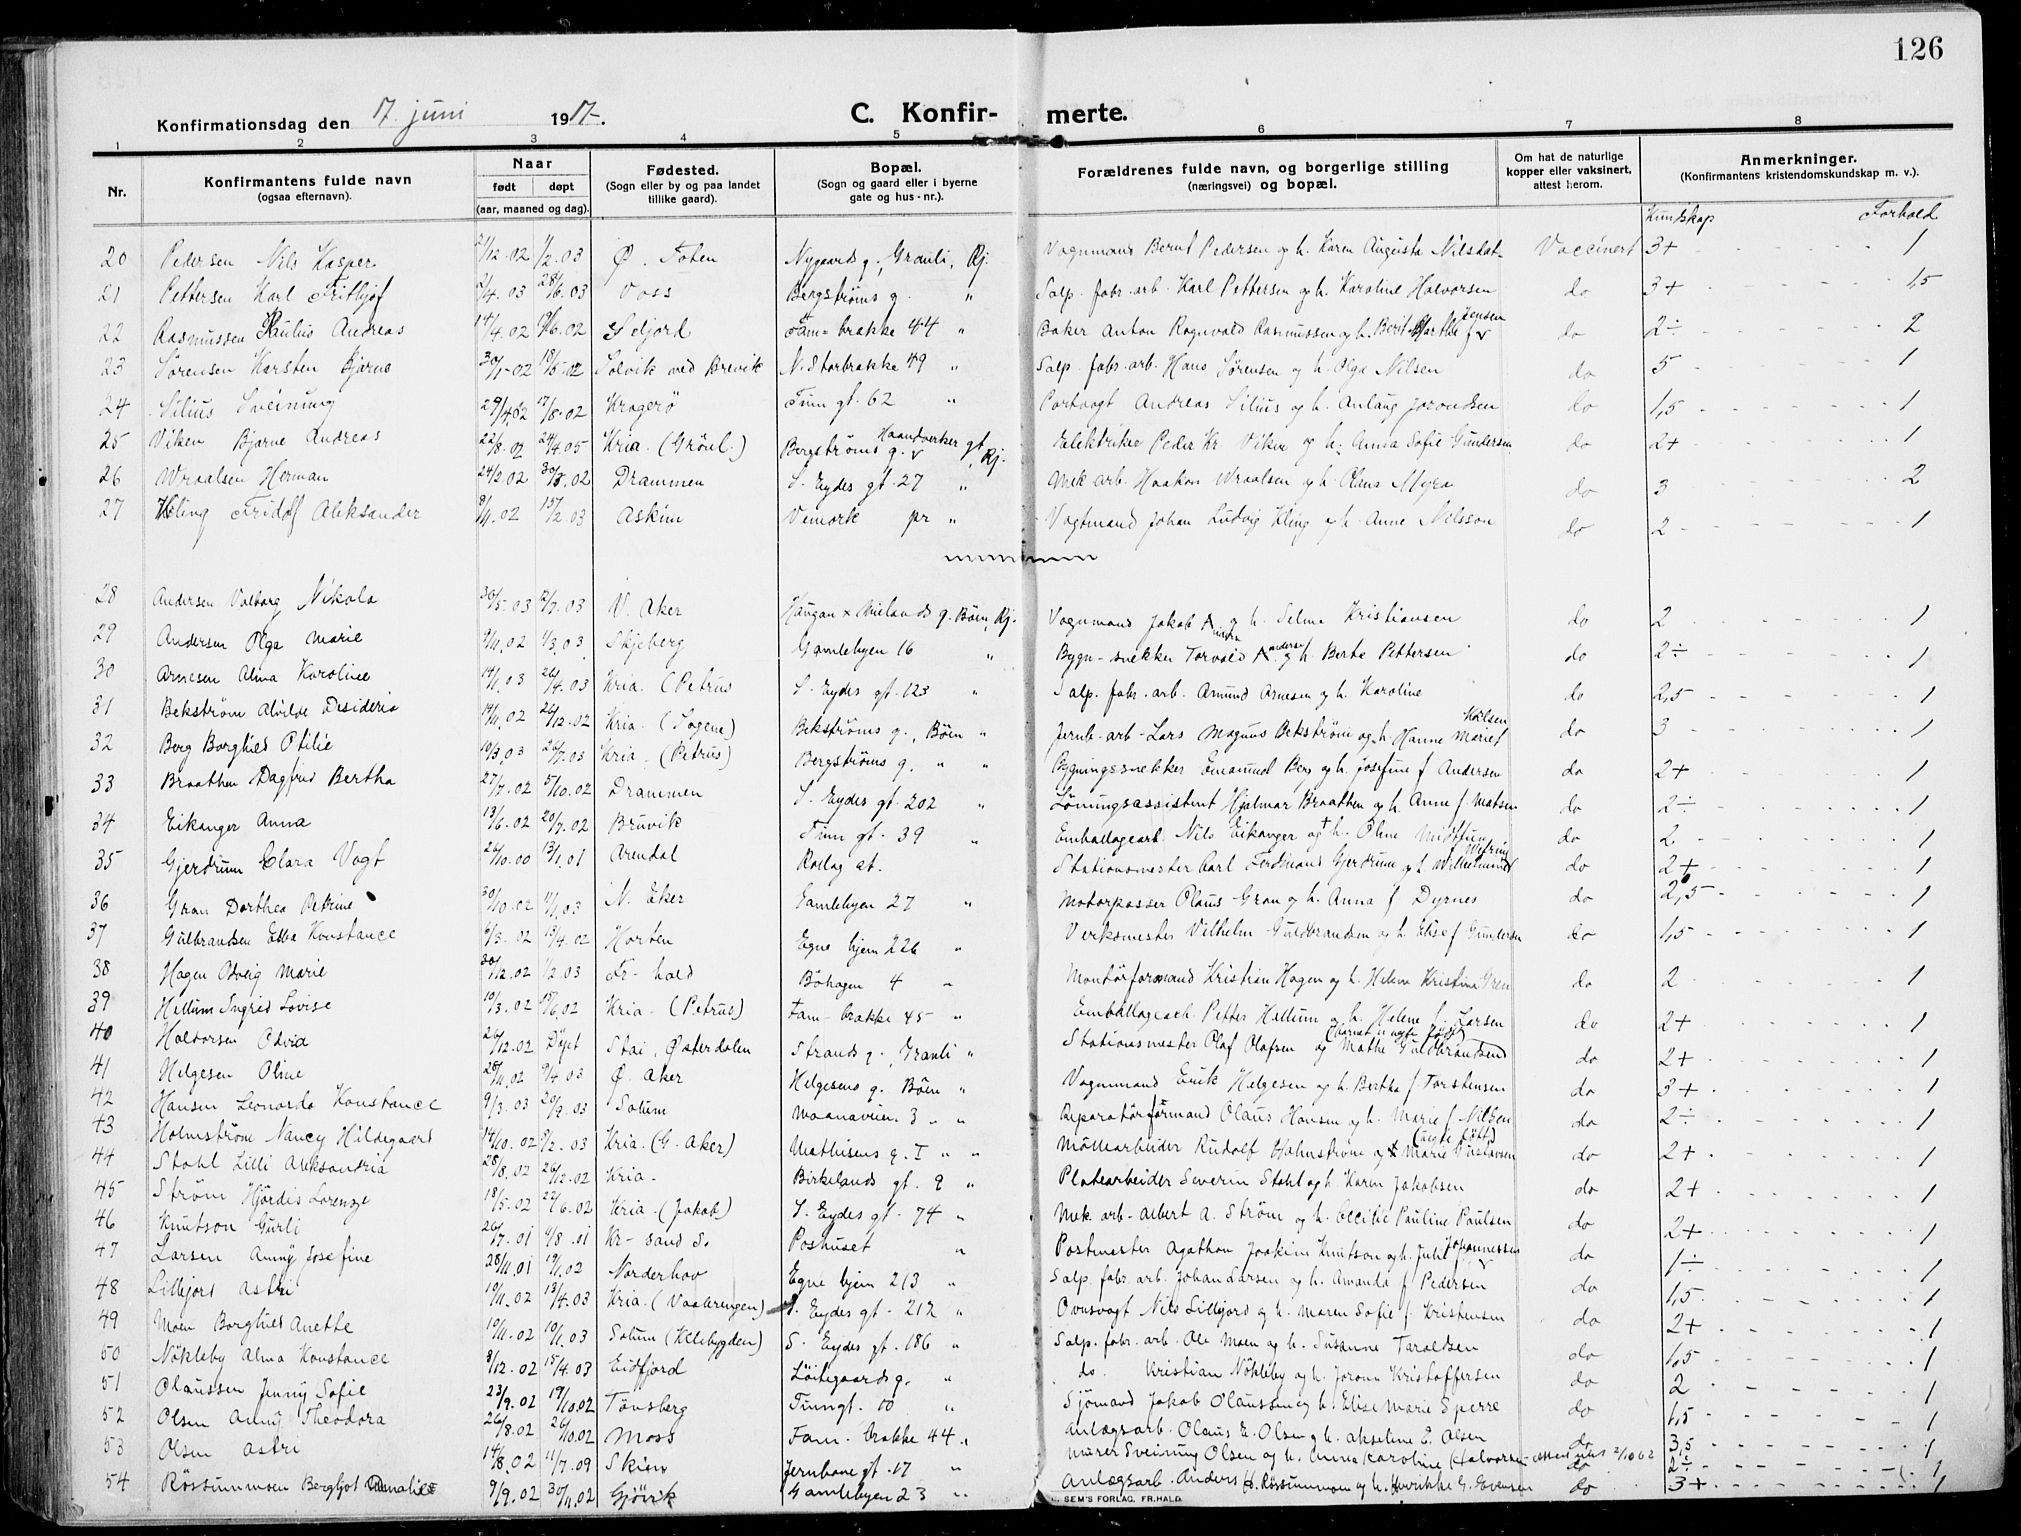 126
Konfirmationsdag den 17. juni 1917. C. Konfirmerte.
1 2 3 4 5 6 7 8
Nr. Konfirmantens fulde navn (ogsaa efternavn). Naar født døpt (aar, maaned og dag). Fødested. (Sogn eller by og paa landet tillike gaard). Bopæl. (Sogn og gaard eller i byerne gate og hus-nr.). Forældrenes fulde navn, og borgerlige stilling (næringsvei) og bopæl. Om hat de naturlige kopper eller vaksinert, attest herom. Anmerkninger. (Konfirmantens kristendomskundskap m. v.).
Kundskap Forhold
20 Pedersen Nils Kasper 2/12.02 1/2.03 Ø. Toten Nygaards g., Granli, Rj. Vognmand Bernt Pedersen og h. Karen Augusta Nilsdat. Vaccinert 3+ 1
21 Pettersen Karl Fritljof 2/4.03 28/6.03 Voss Bergstrøms g. " Salp. fabr. arb. Karl Pettersen og h. Karoline Halvorsen do 3+ 1,5
22 Rasmussen Paulus Andreas 14/4.02 /6.02 Seljord Fam-brakke 44 " Baker Anton Ragnvald Rasmussen og h. Berit Marthe f. Jensen do 2÷ 2
23 Sørensen Karsten Bjarne 30/1-02 18/5.02 Solvik ved Brevik N. Storbrakke 49 " Salp. fabr. arb. Hans Sørensen og h. Olga Nilsen do 5 1
24 Silius Sveinung 29/4.02 17/8.02 Kragerö Tinn gt. 62 " Portvagt Andreas Silius og h. Anlaug Jorondsen do 1,5 1
25 Viken Bjarne Andreas 22/8.02 24/4.05 Kria. (Grönl.) Bergstrøms g. Haandverker gt., Rj. Elektriker Peder Kr. Viken og h. Anna Sofie Gundersen do 2+ 1
26 Wraalsen Herman 24/2.02 30/3.02 Drammen S. Eydes gt. 27 " Mek. arb. Haakon Wraalsen og h. Olava Myra do 3 2
27 Kling Fridolf Aleksander 8/11.02 15/2.03 Askim Vemork pr " Vagtmand Johan Ludvig Kling og h. Anne Nilsson do 2 1
28 Andersen Valborg Nikola 30/5.03 12/7.03 V. Aker Haugan x Mielands g. Böen, Rj. Vognmand Jakob A. og h. Selma Kristiansen do 2 1
29 Andersen Olga Marie 9/11.02 1/3.03 Skjeberg Gamlebyen 16 " Bygn-snekker Torvald Andersen og h. Berte Pettersen do 2÷ 1
30 Arnesen Alma Karoline 14/1.03 26/4.03 Kria. (Petrus S. Eydes gt. 123 " Salp. fabr. arb. Amund Arnesen og h. Karoline do 2,5 1
31 Bekström Alvilde Desideria 14/11.02 26/12.02 Kria. (Sagene) Bekströms g., Böen " Jernb-arb-Lars Magnus Bekström og h. Hanne Marie f. Karlsen do 3 1
32 Berg Borghild Otilie 10/3.03 26/7.03 Kria. (Petrus) Bergströms g. " " Bygningssnekker Emanuel Berg og h. Josefine f. Andersen do 2+ 1
33 Braathen Dagfrid Bertha 27/7.02 5/10.02 Drammen S. Eydes gt. 202 " Lønningsassistent Hjalmar Braathen og h. Anne f. Matsen do 2÷ 1
34 Eikanger Anna 13/6.02 20/7.02 Bruvik Tinn gt. 39 " Emballagearb. Nils Eikanger og h. Oline Midttun do 2 1
35 Gjerdrum Clara Vogt 26/10.00 13/1.01 Arendal Rollag st. Stationsmester Carl Ferdinand Gjerdrum og h. Wilhelmine f. Wefring do 2+ 1
36 Gran Dorthea Petrine 30/10.02 11/1.03 N. Eker Gamlebyen 27 " Motorpasser Olaus Gran og h. Anna f. Dyrnes do 2,5 1
37 Gulbrandsen Ebba Konstance 6/3.02 13/4.02 Horten Egne hjem 226 " Verksmester Vilhelm Guldbrandsen og h. Elise f. Gundersen do 1,5 1
38 Hagen Solveig Marie 30/12.02 1/2.03 Fr-hald Böhagen 4 " Montørformand Kristian Hagen og h. Helena Kristina Gren do 2 1
39 Hellum Ingrid Lovise 10/3.02 15/6.02 Kria. (Petrus) Fam-brakke 45 " Emballagearb. Petter Hellum og h. Helene f. Larsen do 2+ 1
40 Halvorsen Olvia 26/12.02 Döpt Stai, Østerdalen Strands g. Granli " Stationsmester Olaf Olafsen og Mathe Guldbrandsen do 2+ 1
41 Helgesen Oline 28/11.02 9/4.03 Ø. Aker Helgesens g. Böen " Vognmand Erik Helgesen og h. Bertha f. Torstensen do 3+ 1
42 Hansen Leonarda Konstance 9/3.03 20/9.03 Solum " Reparatørformand Olaus Hansen og h. Marie f. Nilsen do 2÷ 1
43 Holmström Nancy Hildegart 14/10.02 9/2.03 Kria. (G. Aker) Mathisens g. I " " Möllearbeider Rudolf Holmstrøm og Marie Gustavsen do 2+ 1
44 Stahl Lilli Aleksandria 28/8.02 26/12.02 Kria. Birkelands gt. 9 " Platearbeider Severin Stahl og h. Karen Jakobsen do 2+ 1
45 Ström Hjördis Lorenze 18/5.02 22/6.02 Kria. (Jakob) S. Eydes gt. 74 " Mek. arb. Albert A. Ström og h. Cecilie Pauline Paulsen do 2+ 1
46 Knutson Gurli 26/7.01 /8.01 Kr-sand S. Poshuset " Postmester Agathon Joakim Knutson og h. Julie Johannessen do 1÷ 1
47 Larsen Anny Josefine 28/11.01 19/1.02 Norderhov Egne hjem 213 " Salp. fabr. arb. Johan Larsen og h. Amanda f. Pedersen do 1,5 1
48 Lilljord Astri 10/11.02 13/4.03 Kria. (Vaalerengen) S. Eydes gt. 212 " Ovnsvagt Nils Lilljord og h. Maren Sofie f. Kristensen do 2+ 1
49 Moen Borghild Anette 10/11.02 10/1.03 Solum (Klebygden) S. Eydes gt. 186 " Salp. fabr. arb. Ole Moen og h. Susanne Taraldsen do 1,5 1
50 Nökleby Alma Konstance 3/12.02 15/4.03 Eidfjord Löitegaards g. " do. Kristian Nökleby og h. Jorane Kristoffersen do 2 1
51 Olaussen Jenny Sofie 23/9.02 19/10.02 Tönsberg Tinngt. 00 " Sjømand Jakob Olaussen og h. Elise Marie Sperre do 1,5 1
52 Olsen Anny Theodora 26/8.02 26/10.02 Moss Fam-brakke 44 " Anlægsarb. Olaus E. Olsen og h. Akseline E. Olsen do 3,5 1
53 Olsen Astri 14/8.02 11/7.09 Skien Jernbane gt. 17 " Murer Sveinung Olsen og h. Anna Karoline Halvorsen 2/10 62 do 2÷ 1
54 Røssummoen Bergljot Amalie 9/9.02 30/11.02 Gjövik Gamlebyen 23 " Anlægsarb. Anders H. Røssummoen og h. Henrikke G. Evensen do 3+ 1
SEM'S FORLAG, FR.HALD.